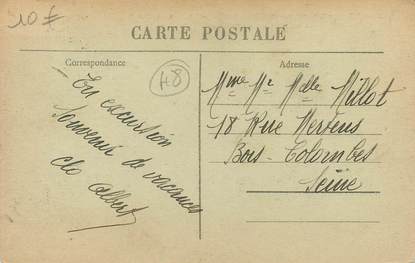 10 €
CARTE POSTALE
Correspondance
48
Adresse
En excursion
Souvenir de vacances
Clo Albert
Mme Mr Melle Millot
18 Rue Mertens
Bois-Colombes
Seine